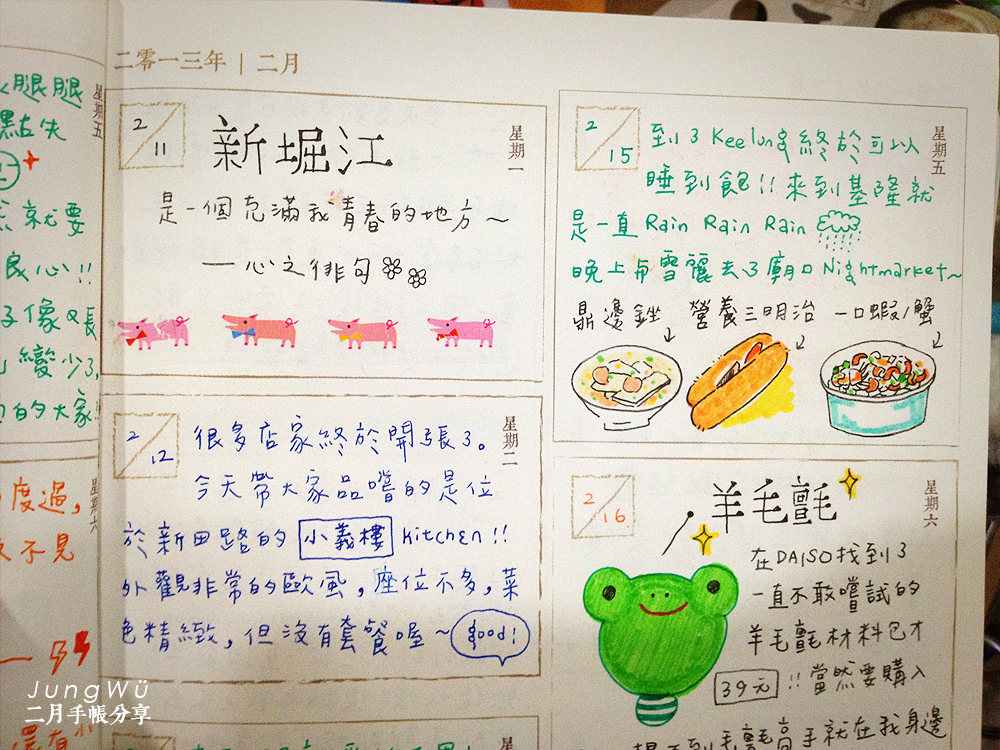 二零一三年 | 二月
腿腿
星期五
點失
就要
良心!!
子像又長
變少了,
的大家
星期六
度過,
不見
2/11
星期一
新堀江
是一個充滿我青春的地方~
一心之徘句
2/12
星期二
很多店家終於開張了。
今天帶大家品嚐的是位
於新田路的 小義樓 kitchen!!
外觀非常的歐風,座位不多,菜
色精緻,但沒有套餐喔~ good!
星期
2/15
星期五
到了Keelung終於可以
睡到飽!!來到基隆就
是一直Rain Rain Rain
晚上与雪麗去了廟口Nightmarket~
鼎邊銼 營養三明治 一口蝦/蟹
2/16
星期六
羊毛氈
在DAISO找到了
一直不敢嚐試的
羊毛氈材料包才
39元 !!當然要購入
想不到毛氈高手就在我身邊
JungWü
二月手帳分享